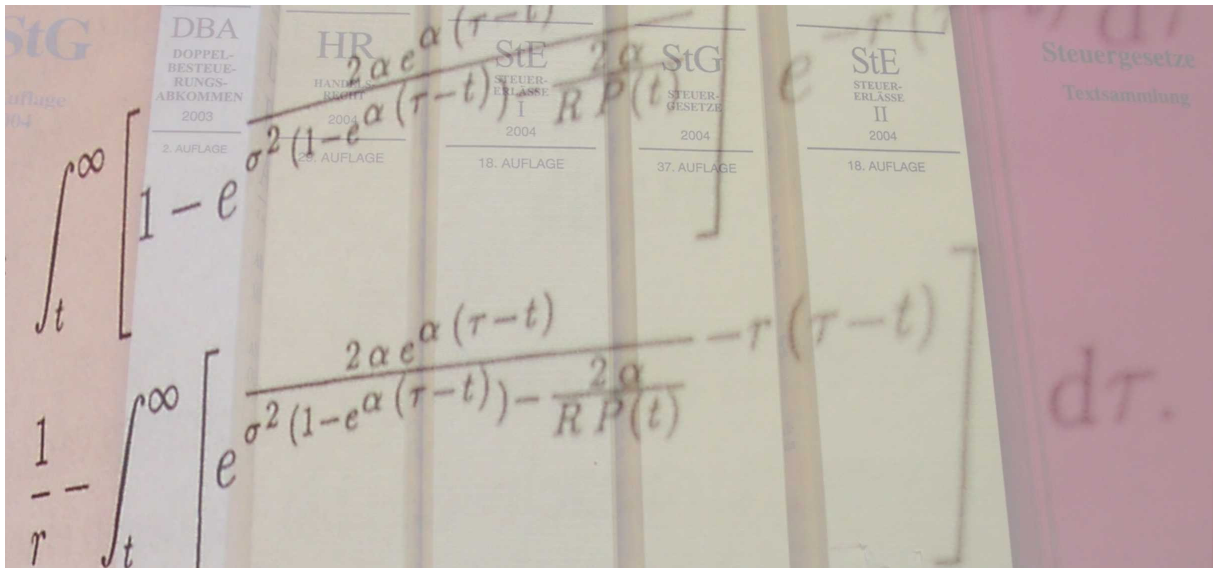 StG
uflage
DBA
DOPPEL-
BESTEUE-
RUNGS-
ABKOMMEN
2003
2. AUFLAGE
HR
HANDELS-
RECHT
2004
29. AUFLAGE
StE
STEUER-
ERLÄSSE
I
2004
18. AUFLAGE
StG
STEUER-
GESETZE
2004
37. AUFLAGE
StE
STEUER-
ERLÄSSE
II
2004
18. AUFLAGE
Steuergesetze
Textsammlung
∫_t^∞ [1 − e^{2 α e^{α (τ−t)} / (σ^2 (1−e^{α (τ−t)}) − 2 α / (R P(t)))}] e^{−r (τ−t)} dτ
1/r − ∫_t^∞ [e^{2 α e^{α (τ−t)} / (σ^2 (1−e^{α (τ−t)}) − 2 α / (R P(t))) − r (τ−t)}] dτ.